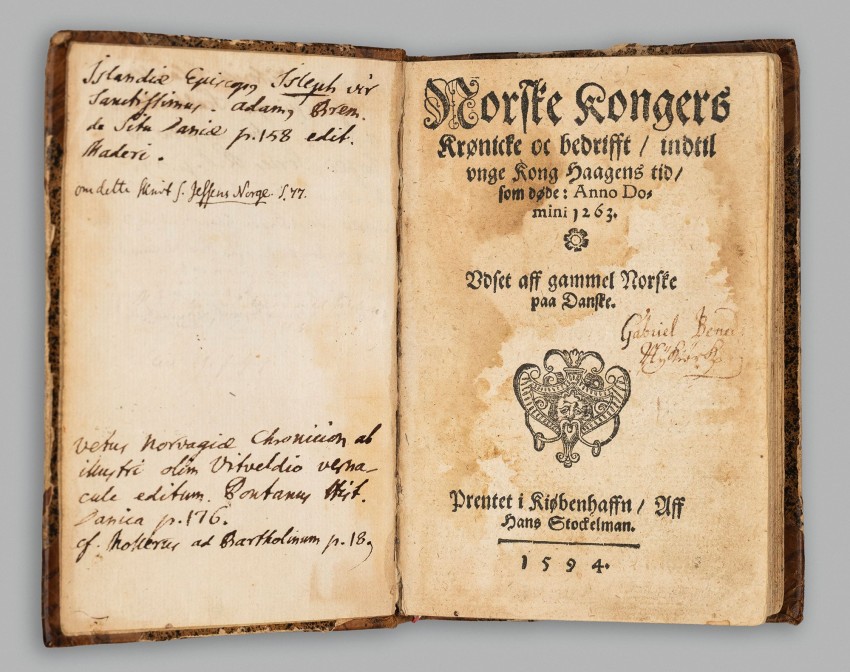 Islandiæ Episcop, Isleph vir
Sanctissimus. adam, Brem.
de Situ Daniæ p. 158 edit.
Maderi.
om dette skrivt s. Jessens Norge. S. 77.
vetus Norvagiæ Chronicion ab
illustri olim Vitveldio verna-
cule editum. Pontanus Hist.
Danica p. 176.
cf. Mollerus ad Bartholinum p. 18
Norske Kongers
Krønicke oc bedrifft / indtil
vnge Kong Haagens tid /
som døde: Anno Do-
mini 1263.
Vdset aff gammel Norske
paa Danske.
Gabriel
Prentet i Kiøbenhaffn / Aff
Hans Stockelman.
1594.